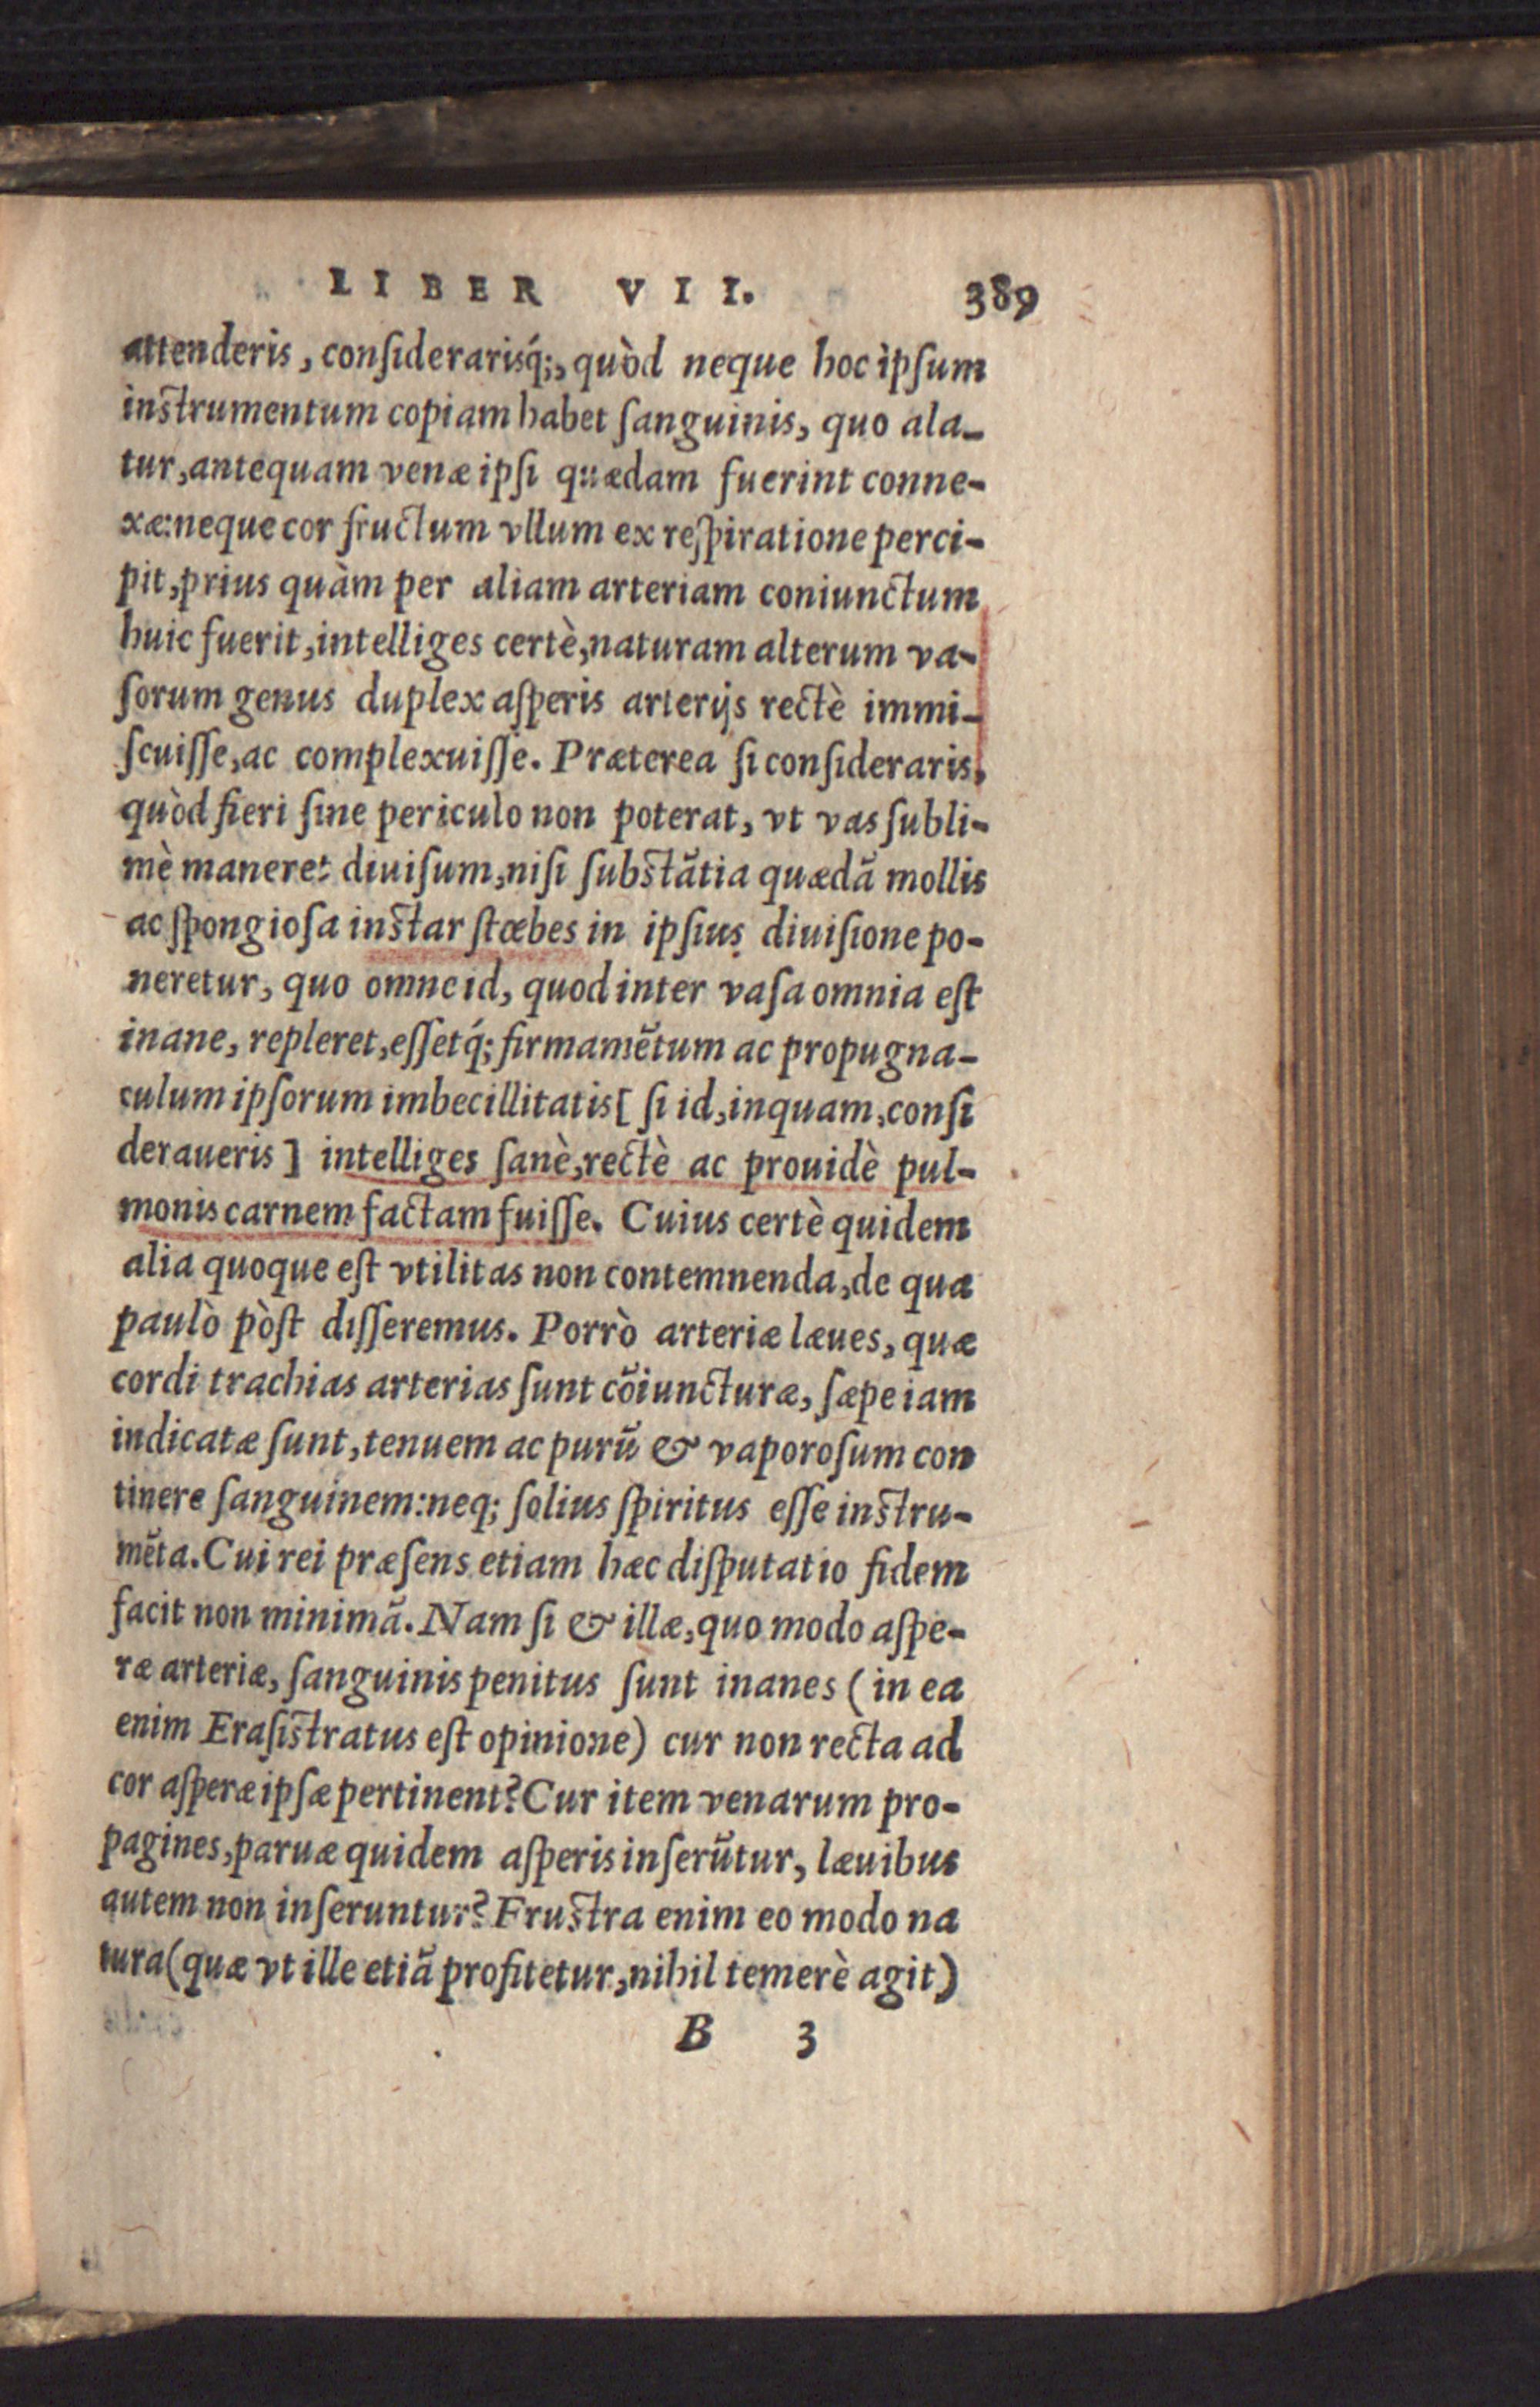 LIBER VII. 389
attenderis, conſiderarisq́;, quòd neque hoc ipſum
inſtrumentum copiam habet ſanguinis, quo ala-
tur, antequam venæ ipſi quædam fuerint conne-
xæ: neque cor fructum vllum ex reſpiratione perci-
pit, prius quàm per aliam arteriam coniunctum
huic fuerit, intelliges certè, naturam alterum va-
ſorum genus duplex aſperis arterijs rectè immi-
ſcuiſſe, ac complexuiſſe. Præterea ſi conſideraris,
quòd fieri ſine periculo non poterat, vt vas ſubli-
mè maneret diuiſum, niſi ſubſtãtia quædã mollis
ac ſpongioſa inſtar ſtœbes in ipſius diuiſione po-
neretur, quo omne id, quod inter vaſa omnia eſt
inane, repleret, eſſetq́; firmamẽtum ac propugna-
culum ipſorum imbecillitatis [ ſi id, inquam, conſi
deraueris ] intelliges ſanè, rectè ac prouidè pul-
monis carnem factam fuiſſe. Cuius certè quidem
alia quoque eſt vtilitas non contemnenda, de qua
paulò pòſt diſſeremus. Porrò arteriæ læues, quæ
cordi trachias arterias ſunt cõiuncturæ, ſæpe iam
indicatæ ſunt, tenuem ac purũ & vaporoſum con
tinere ſanguinem: neq; ſolius ſpiritus eſſe inſtru-
mẽta. Cui rei præſens etiam hæc diſputatio fidem
facit non minimã. Nam ſi & illæ, quo modo aſpe-
ræ arteriæ, ſanguinis penitus ſunt inanes (in ea
enim Eraſiſtratus eſt opinione) cur non recta ad
cor aſperæ ipſæ pertinent? Cur item venarum pro-
pagines, paruæ quidem aſperis inſerũtur, læuibus
autem non inſeruntur? Fruſtra enim eo modo na
tura (quæ vt ille etiã profitetur, nihil temerè agit)
B 3